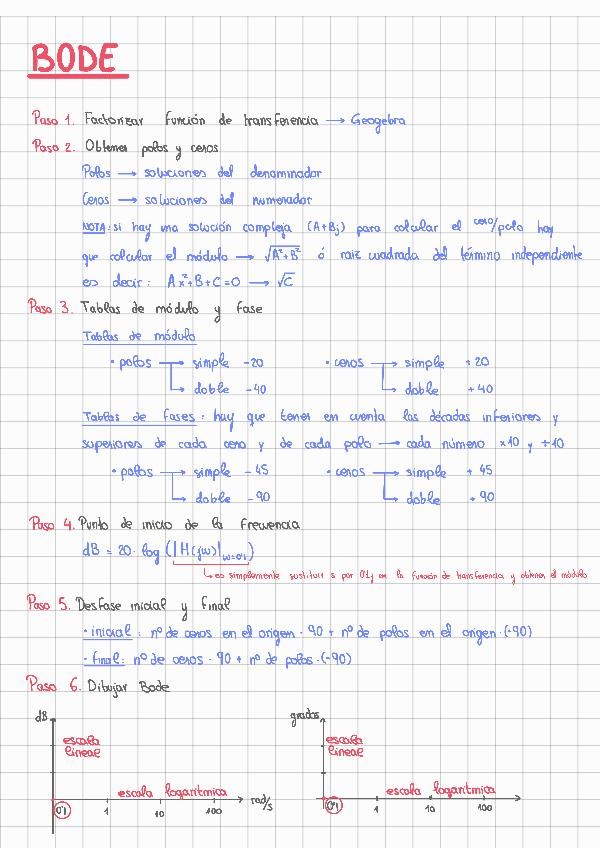 BODE
Paso 1. Factorizar función de transferencia → Geogebra
Paso 2. Obtener polos y ceros
Polos → soluciones del denominador
Ceros → soluciones del numerador
NOTA: si hay una solución compleja (A+Bj) para calcular el cero/polo hay
que calcular el módulo → √A²+B² ó raiz cuadrada del término independiente
es decir: Ax²+B+C=0 → √C
Paso 3. Tablas de módulo y fase
Tablas de módulo
· polos → simple -20 · ceros → simple +20
→ doble -40 → doble +40
Tablas de fases: hay que tener en cuenta las décadas inferiores y
superiores de cada cero y de cada polo → cada número x10 y ÷10
· polos → simple -45 · ceros → simple +45
→ doble -90 → doble +90
Paso 4. Punto de inicio de la frecuencia
dB = 20·log (|H(jω)|ω=0'1)
→ es simplemente sustituir s por 0'1j en la función de transferencia y obtener el módulo
Paso 5. Desfase inicial y final
· inicial: nº de ceros en el origen · 90 + nº de polos en el origen·(-90)
· final: nº de ceros · 90 + nº de polos·(-90)
Paso 6. Dibujar Bode
dB grados
escala escala
lineal lineal
escala logarítmica rad/s escala logarítmica
0'1 1 10 100 0'1 1 10 100